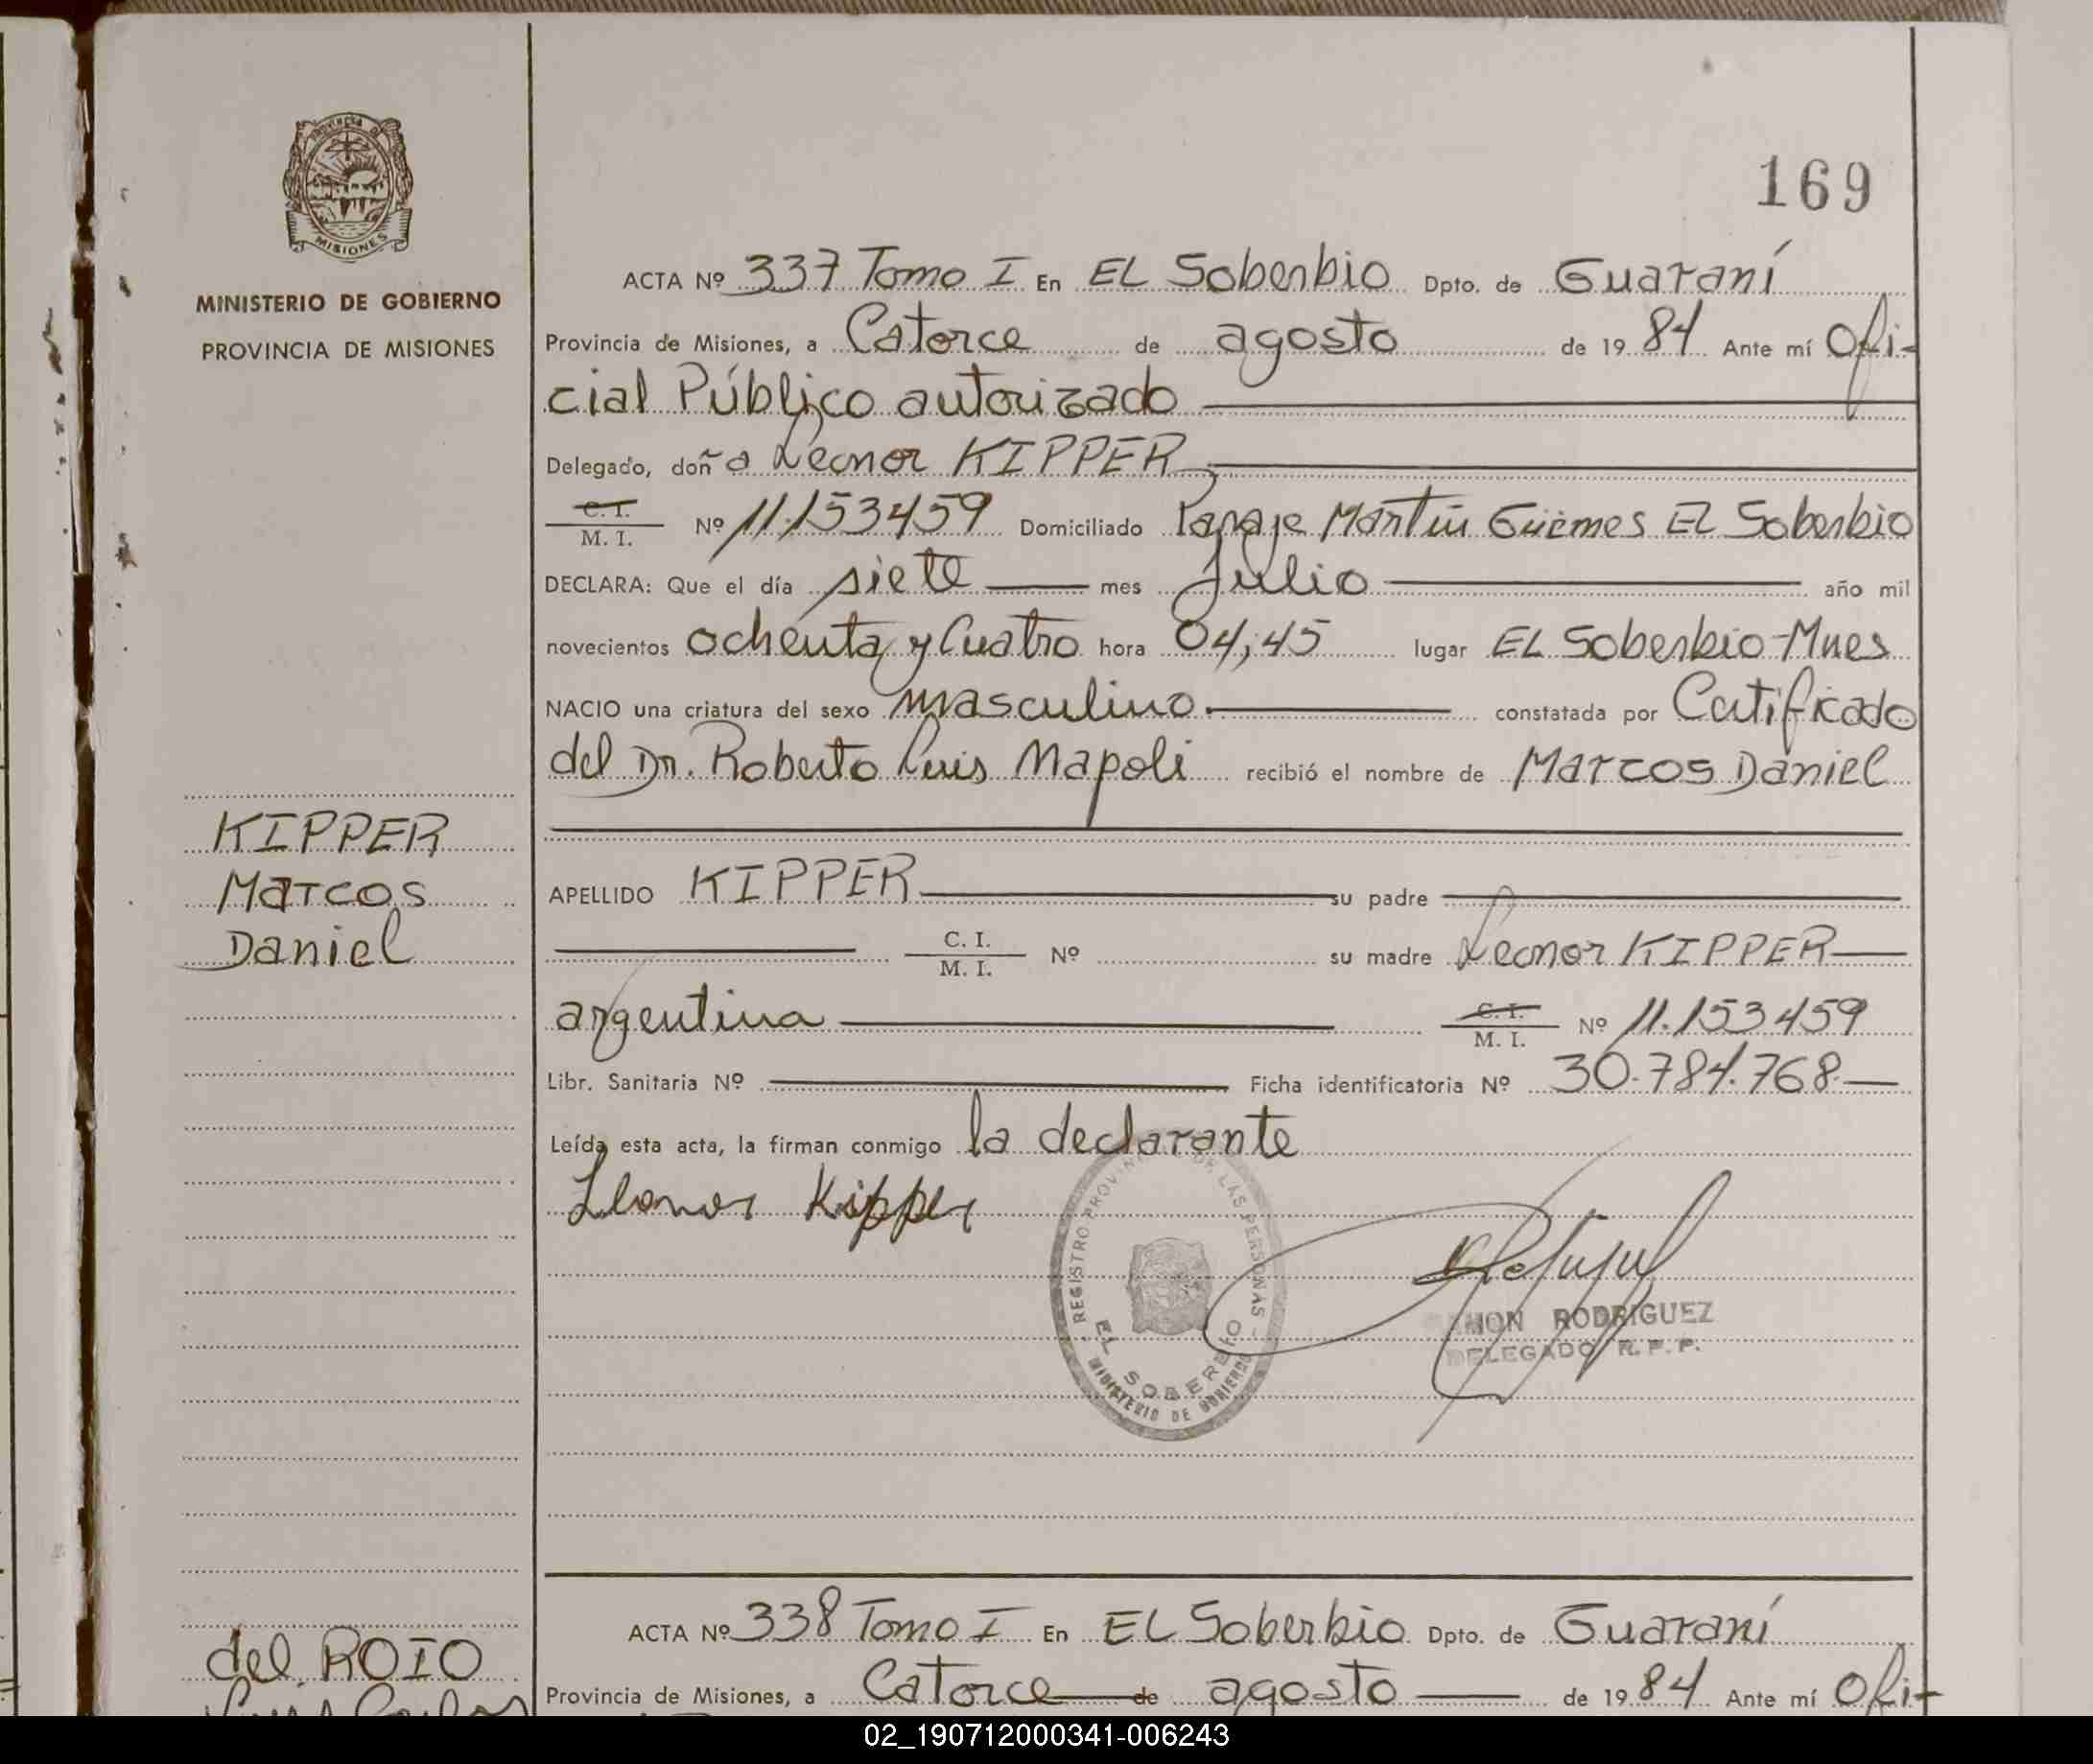 169
PROVINCIA DE
MISIONES
MINISTERIO DE GOBIERNO
PROVINCIA DE MISIONES
KIPPER
Marcos
Daniel
ACTA Nº 337 Tomo I En EL Soberbio Dpto. de Guaraní
Provincia de Misiones, a Catorce de agosto de 1984 Ante mí Ofi-
cial Público autorizado
Delegado, doña Leonor KIPPER
C. I.
M. I. Nº 11.153459 Domiciliado Paraje Martín Güemes El Soberbio
DECLARA: Que el día siete mes Julio año mil
novecientos ochenta y Cuatro hora 04,45 lugar EL Soberbio-Mnes
NACIO una criatura del sexo masculino. constatada por Certificado
del Dr. Roberto Luis Napoli recibió el nombre de Marcos Daniel
APELLIDO KIPPER su padre
C. I.
M. I. Nº su madre Leonor KIPPER
argentina C. I.
M. I. Nº 11.153459
Libr. Sanitaria Nº Ficha identificatoria Nº 30.784.768.
Leída esta acta, la firman conmigo la declarante
Leonor Kipper
REGISTRO PROVINCIAL DE LAS PERSONAS
EL SOBERBIO
MINISTERIO DE GOBIERNO
RAMON RODRIGUEZ
DELEGADO R.P.P.
del ROIO
Luis Carlos
ACTA Nº 338 Tomo I En EL Soberbio Dpto. de Guaraní
Provincia de Misiones, a Catorce de agosto de 1984 Ante mí Ofi-
02_190712000341-006243